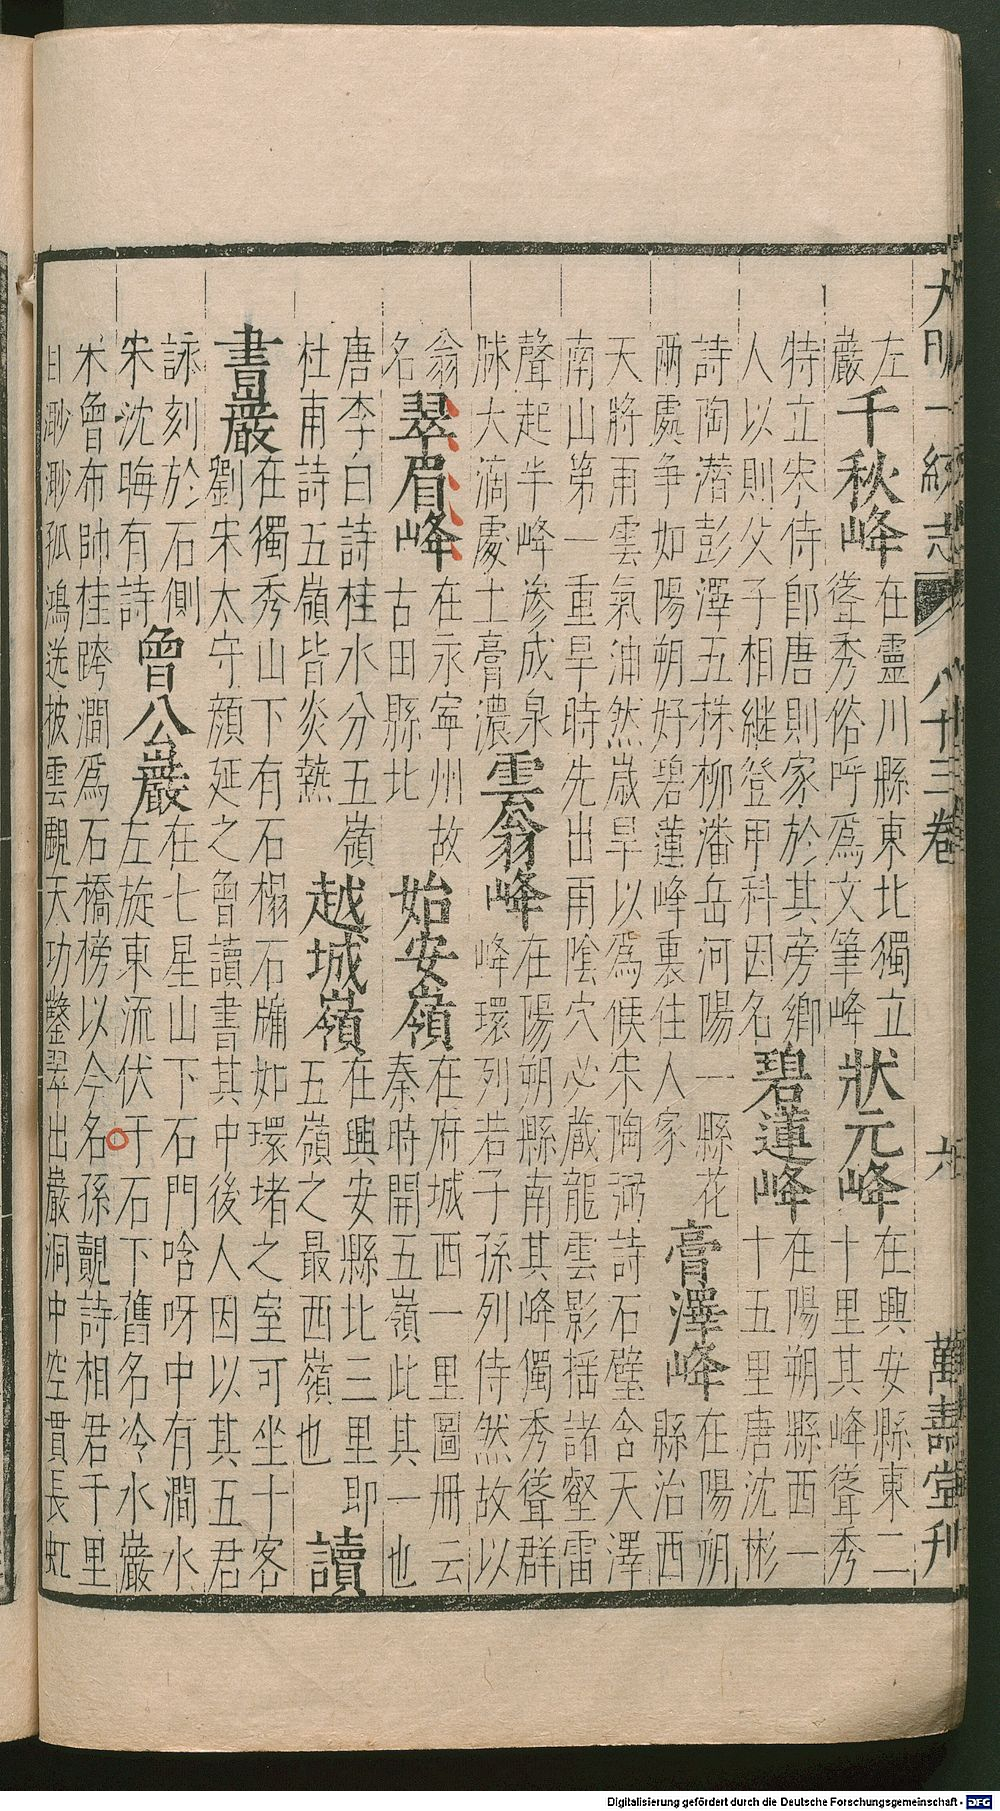 大明一統志 八十三卷 萬壽堂刊
左
巖
千秋峰
在靈川縣東北獨立
聳秀俗呼爲文筆峰
狀元峰
在興安縣東二
十里其峰聳秀
特立宋侍郎唐則家於其旁鄉
人以則父子相繼登甲科因名
碧蓮峰
在陽朔縣西一
十五里唐沈彬
詩陶潛彭澤五株柳潘岳河陽一縣花
兩處爭如陽朔好碧蓮峰裏住人家
膏澤峰
在陽朔
縣治西
天將雨雲氣油然歲旱以爲候宋陶弼詩石璧含天澤
南山第一重旱時先出雨陰穴必藏龍雲影揺諸壑雷
聲起半峰滲成泉
脉大滴處土膏濃
雲翁峰
在陽朔縣南其峰獨秀聳群
峰環列若子孫列侍然故以
翁
名
翠眉峰
在永寧州故
古田縣北
始安嶺
在府城西一里圖册云
秦時開五嶺此其一也
唐李白詩桂水分五嶺
杜甫詩五嶺皆炎熱
越城嶺
在興安縣北三里即
五嶺之最西嶺也
讀
書巖
在獨秀山下有石榻石牖如環堵之室可坐十客
劉宋太守顔延之曾讀書其中後人因以其五君
詠刻於石側
宋沈晦有詩
曾公巖
在七星山下石門啥呀中有澗水
左旋東流伏于石下舊名冷水巖
宋曾布帥桂跨澗爲石橋榜以今名孫覿詩相君千里
目渺渺孤鴻送披雲覿天功鑿翠出巖洞中空貫長虹
Digitalisierung gefördert durch die Deutsche Forschungsgemeinschaft - DFG